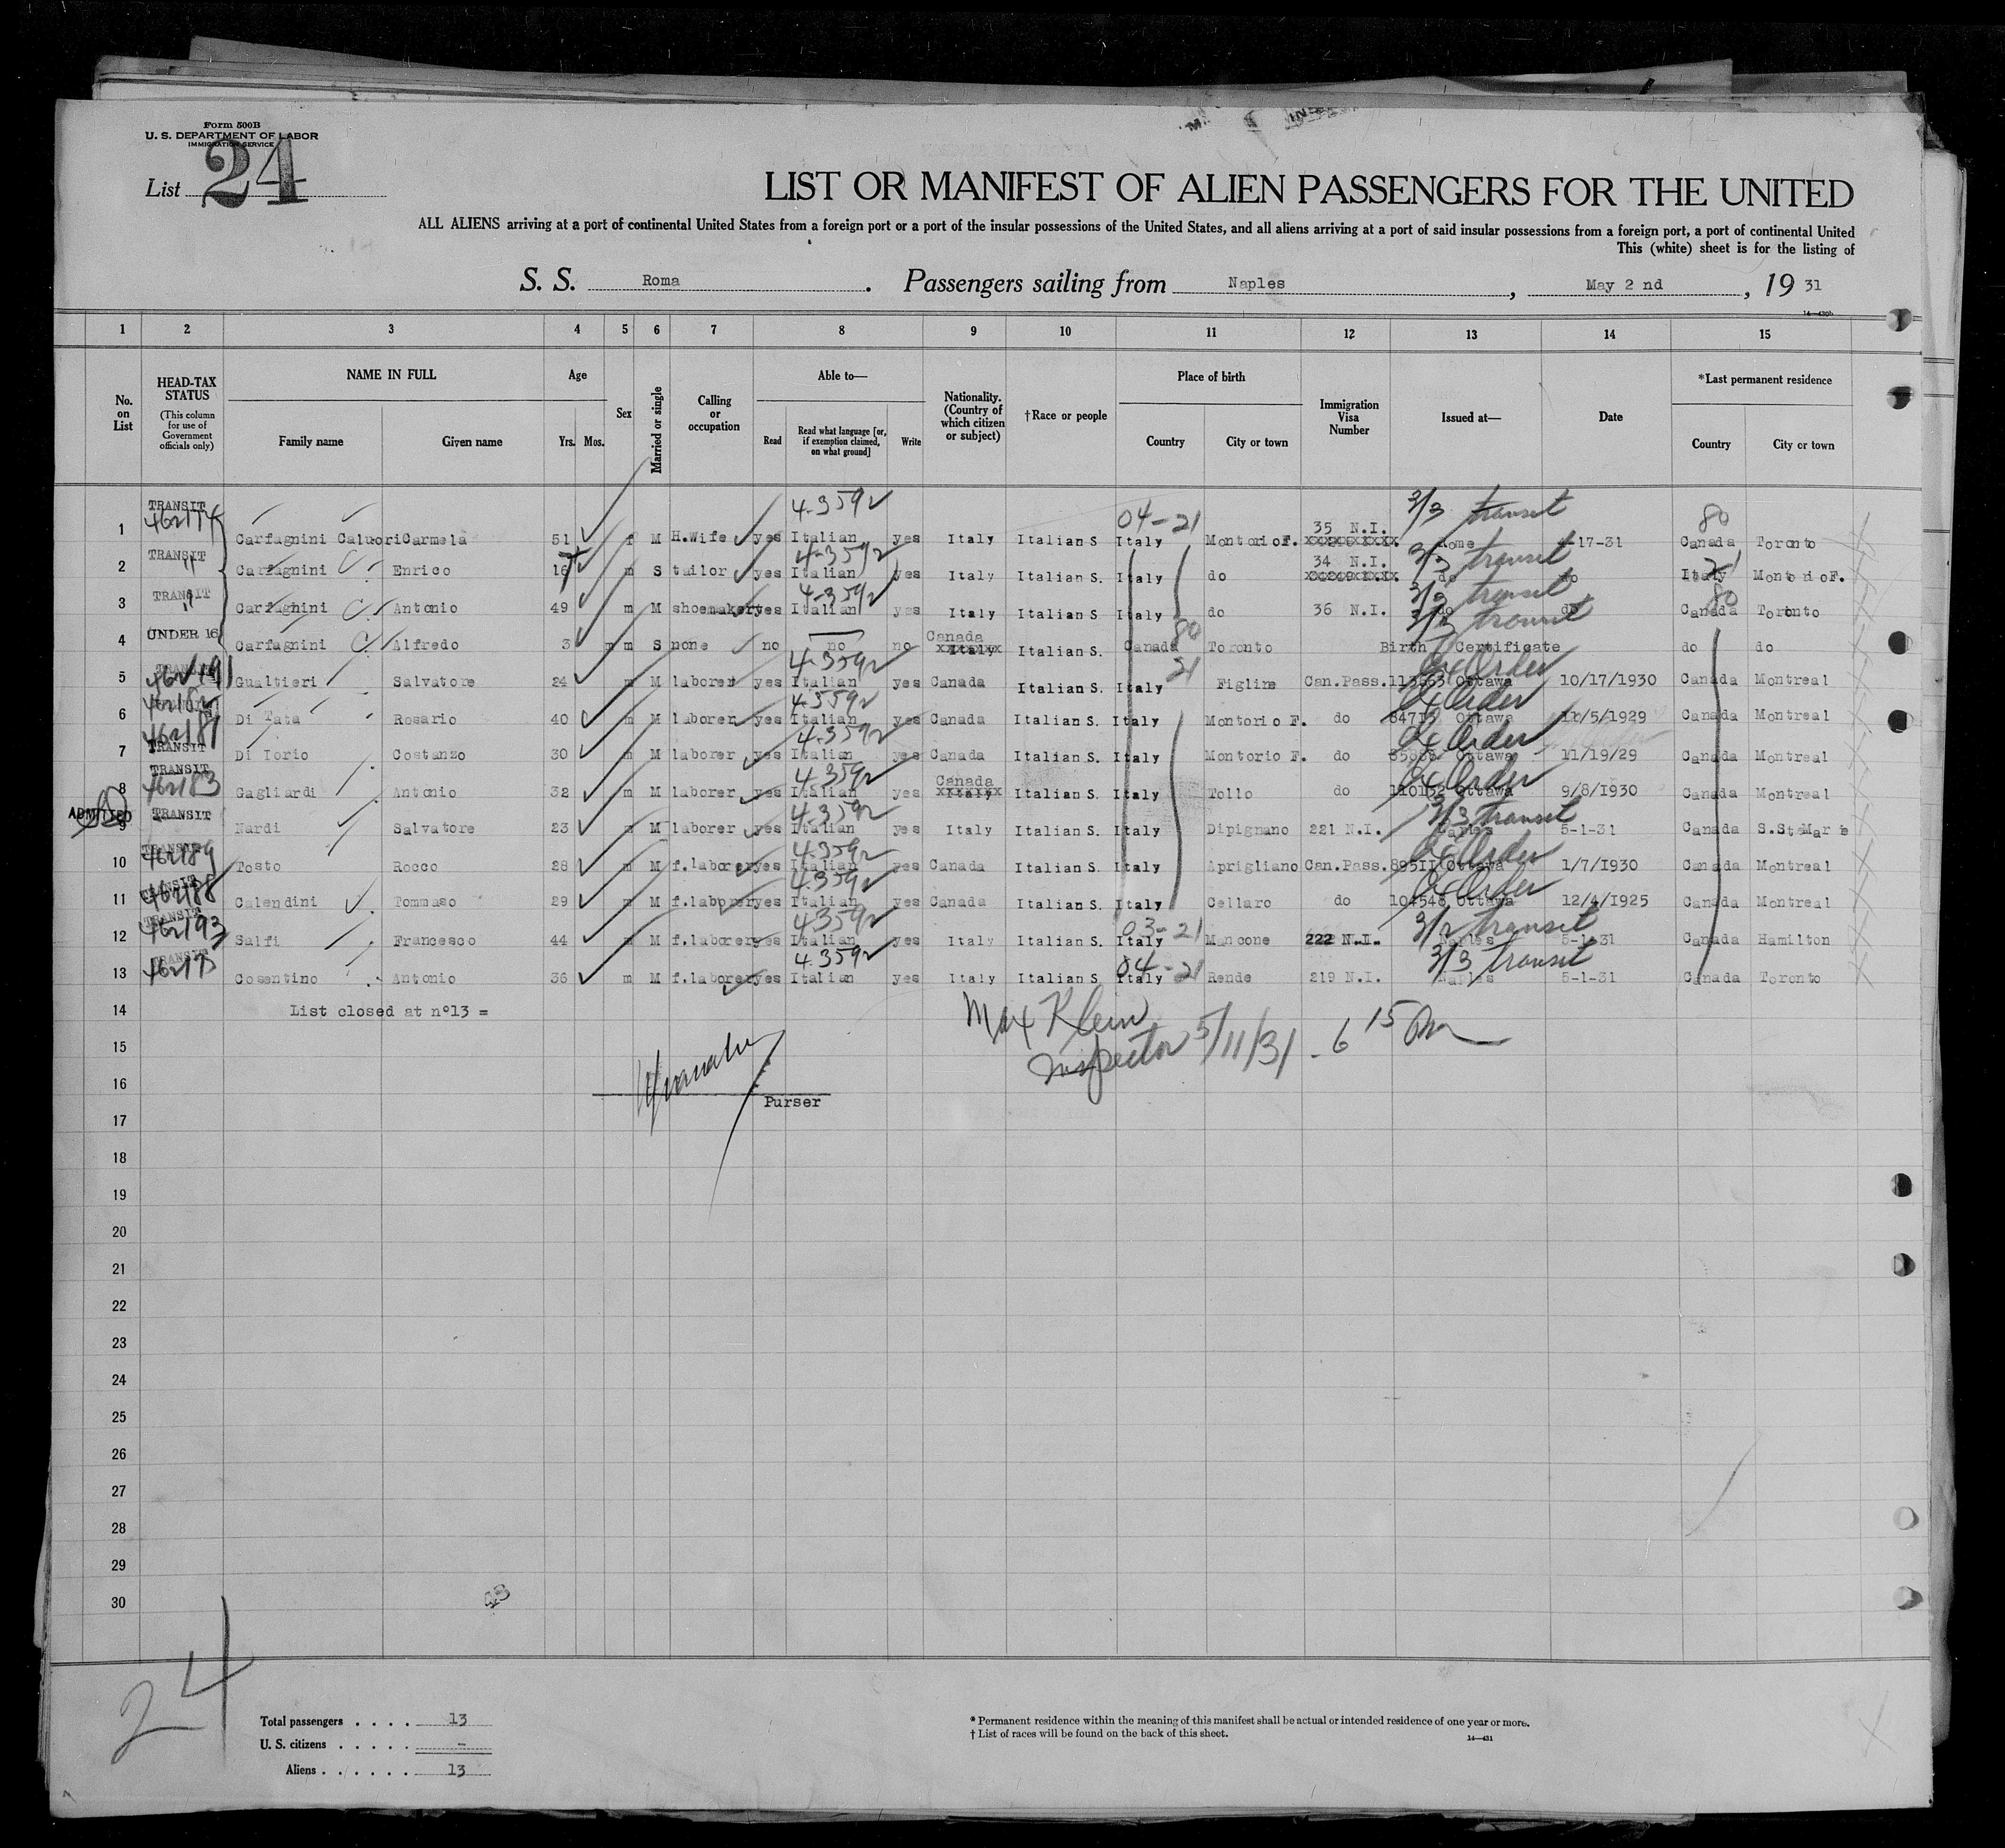 Form 500B
U. S. DEPARTMENT OF LABOR
IMMIGRATION SERVICE
List 24
LIST OR MANIFEST OF ALIEN PASSENGERS FOR THE UNITED
ALL ALIENS arriving at a port of continental United States from a foreign port or a port of the insular possessions of the United States, and all aliens arriving at a port of said insular possessions from a foreign port, a port of continental United
This (white) sheet is for the listing of
S. S. Roma. Passengers sailing from Naples, May 2 nd, 19 31
14—430b
1 2 3 4 5 6 7 8 9 10 11 12 13 14 15
No. on List
HEAD-TAX STATUS (This column for use of Government officials only)
NAME IN FULL
Family name Given name
Age
Yrs. Mos.
Sex
Married or single
Calling or occupation
Able to—
Read
Read what language [or, if exemption claimed, on what ground]
Write
Nationality. (Country of which citizen or subject)
†Race or people
Place of birth
Country City or town
Immigration Visa Number
Issued at—
Date
*Last permanent residence
Country City or town
TRANSIT 4-3592 04-21 35 N.I. 3/3 transit 80
1 Carfagnini Caluori Carmela 51 f M H.Wife yes Italian yes Italy Italian S Italy Montorio F. Rome 4-17-31 Canada Toronto
TRANSIT 4-3592 34 N.I. 3/3 transit
2 Carfagnini Enrico 16 m S tailor yes Italian yes Italy Italian S. Italy do do do Italy Montorio F.
TRANSIT 4-3592 3/3 transit 80
3 Carfagnini Antonio 49 m M shoemaker yes Italian yes Italy Italian S. Italy do 36 N.I. do do Canada Toronto
UNDER 16 Canada 80 transit
4 Carfagnini Alfredo 3 m m S none no no no Italy Italian S. Canada Toronto Birth Certificate do do
TRANSIT 4-3592 21 Ex Order
5 Gualtieri Salvatore 24 m M laborer yes Italian yes Canada Italian S. Italy Figline Can.Pass. Ottawa 10/17/1930 Canada Montreal
462182 4-3592 Ex Order
6 Di Tata Rosario 40 m M laborer yes Italian yes Canada Italian S. Italy Montorio F. do Ottawa 11/5/1929 Canada Montreal
462181 TRANSIT 4-3592 Ex Order
7 Di Iorio Costanzo 30 m M laborer yes Italian yes Canada Italian S. Italy Montorio F. do Ottawa 11/19/29 Canada Montreal
TRANSIT 462183 4-3592 Canada Ex Order
8 Gagliardi Antonio 32 m M laborer yes Italian yes Italy Italian S. Italy Tollo do 110152 Ottawa 9/8/1930 Canada Montreal
ADMITTED TRANSIT 4-3592 3/3 transit
9 Nardi Salvatore 23 m M laborer yes Italian yes Italy Italian S. Italy Dipignano 221 N.I. Naples 5-1-31 Canada S.SteMarie
TRANSIT 462189 4-3592 Ex Order
10 Tosto Rocco 28 m M f.laborer yes Italian yes Canada Italian S. Italy Aprigliano Can.Pass. 89511 Ottawa 1/7/1930 Canada Montreal
TRANSIT 462188 4-3592 Ex Order
11 Calendini Tommaso 29 m M f.laborer yes Italian yes Canada Italian S. Italy Cellaro do 104548 Ottawa 12/4/1925 Canada Montreal
TRANSIT 462193 4-3592 03-21 3/2 transit
12 Salfi Francesco 44 m M f.laborer yes Italian yes Italy Italian S. Italy Mancone 222 N.I. Naples 5-1-31 Canada Hamilton
TRANSIT 4-3592 04-21 3/3 transit
13 Cosentino Antonio 36 m M f.laborer yes Italian yes Italy Italian S. Italy Rende 219 N.I. Naples 5-1-31 Canada Toronto
14 List closed at nº13 =
Max Klein
15 Inspector 5/11/31 - 6 15 Pm
16
Purser
17
18
19
20
21
22
23
24
25
26
27
28
29
30
24
Total passengers . . . . 13
U. S. citizens . . . . . -
Aliens . . . . . . 13
* Permanent residence within the meaning of this manifest shall be actual or intended residence of one year or more.
† List of races will be found on the back of this sheet.
14—431